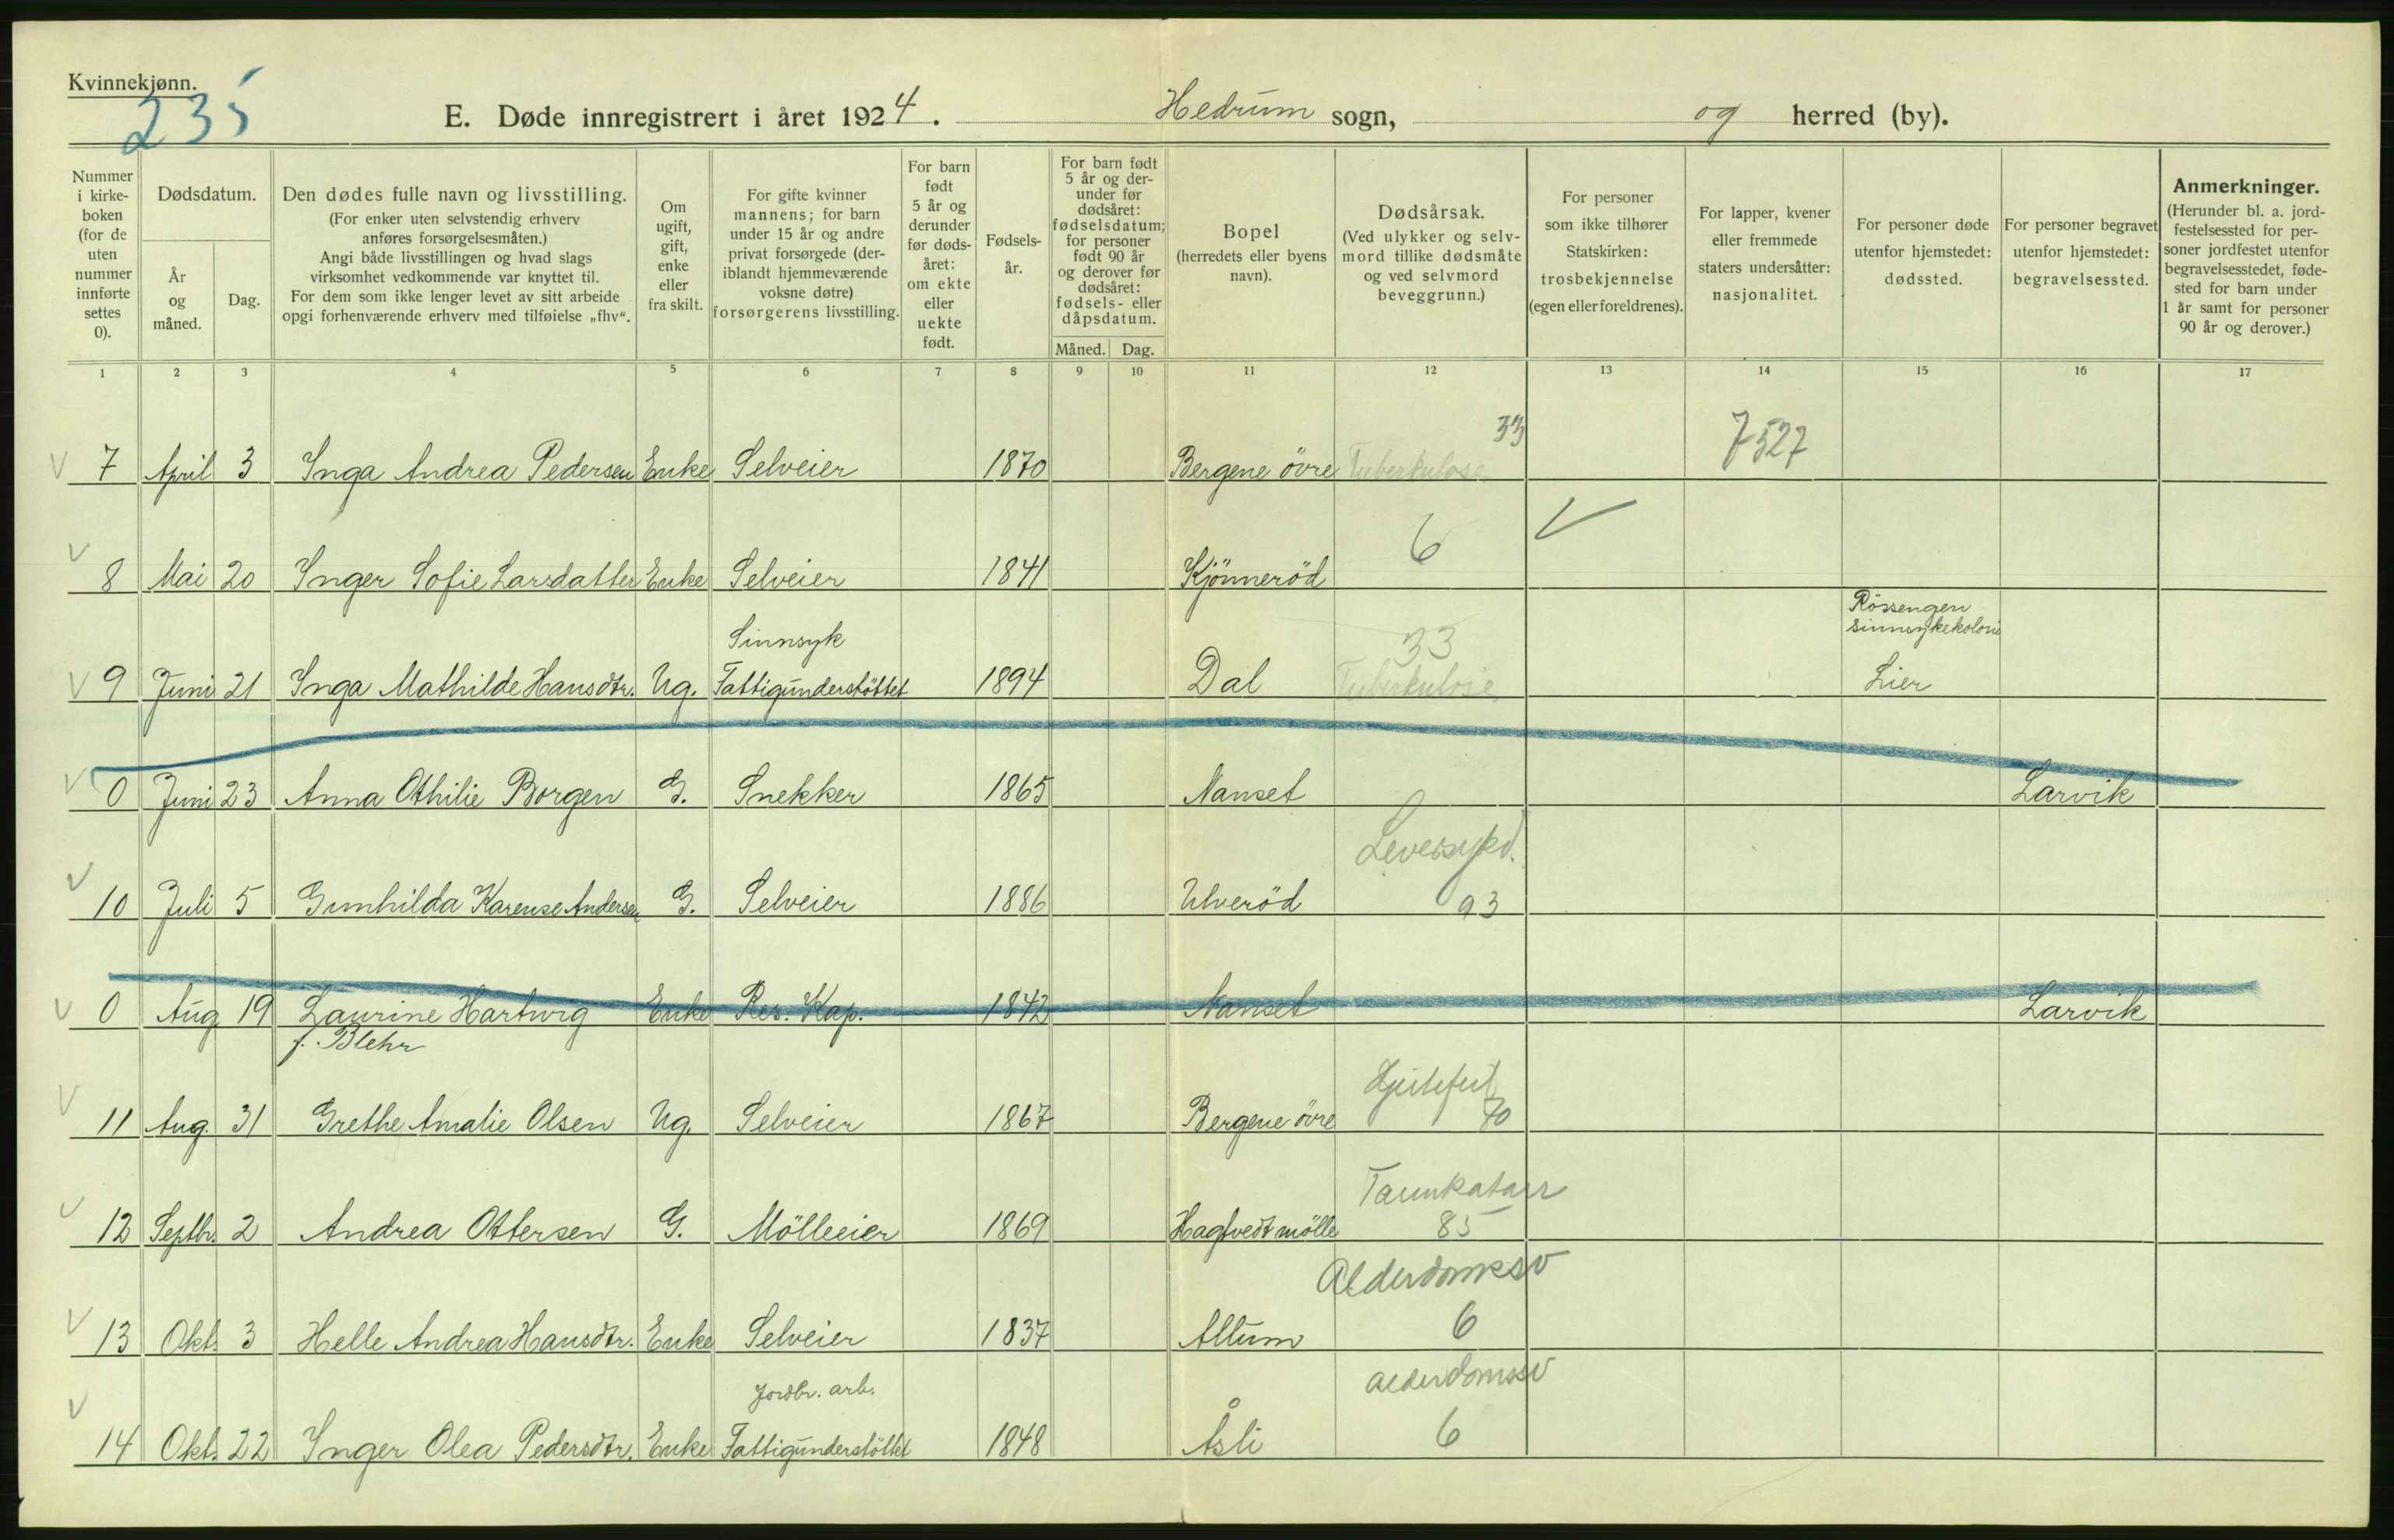 Kvinnekjønn.
235
E. Døde innregistrert i året 1924. Hedrum sogn, og herred (by).
Nummer i kirke-boken (for de uten nummer innførte settes 0).
Dødsdatum.
År og måned.
Dag.
Den dødes fulle navn og livsstilling.
(For enker uten selvstendig erhverv anføres forsørgelsesmåten.)
Angi både livsstillingen og hvad slags virksomhet vedkommende var knyttet til.
For dem som ikke lenger levet av sitt arbeide opgi forhenværende erhverv med tilføielse „fhv“.
Om ugift, gift, enke eller fra skilt.
For gifte kvinner mannens; for barn under 15 år og andre privat forsørgede (der-iblandt hjemmeværende voksne døtre) forsørgerens livsstilling.
For barn født 5 år og derunder før døds-året: om ekte eller uekte født.
Fødsels-år.
For barn født 5 år og der-under før dødsåret: fødselsdatum; for personer født 90 år og derover før dødsåret: fødsels- eller dåpsdatum.
Måned. Dag.
Bopel (herredets eller byens navn).
Dødsårsak. (Ved ulykker og selv-mord tillike dødsmåte og ved selvmord beveggrunn.)
For personer som ikke tilhører Statskirken: trosbekjennelse (egen eller foreldrenes).
For lapper, kvener eller fremmede staters undersåtter: nasjonalitet.
For personer døde utenfor hjemstedet: dødssted.
For personer begravet utenfor hjemstedet: begravelsessted.
Anmerkninger. (Herunder bl. a. jord-festelsessted for per-soner jordfestet utenfor begravelsesstedet, føde-sted for barn under 1 år samt for personer 90 år og derover.)
1 2 3 4 5 6 7 8 9 10 11 12 13 14 15 16 17
33 7527
V 7 April 3 Inga Andrea Pedersen Enke Selveier 1870 Bergene övre Tuberkulose
6
V 8 Mai 20 Inger Sofie Larsdatter Enke Selveier 1841 Kjönneröd
Sinnsyk 33 Rössengen sinnsykekoloni
V 9 Juni 21 Inga Mathilde Hansdtr. Ug. Fattigunderstöttet 1894 Dal Tuberkulose Lier
V 0 Juni 23 Anna Othilie Borgen G. Snekker 1865 Nanset Larvik
Leversykd.
V 10 Juli 5 Gunhilda Karense Andersen G. Selveier 1886 Ulveröd 93
V 0 Aug. 19 Laurine Hartwig Enke Res. Kap. 1842 Nanset Larvik
f. Blehr
Hjertefeil
V 11 Aug. 31 Grethe Amalie Olsen Ug. Selveier 1867 Bergene övre 70
Tarmkatarr
V 12 Septbr. 2 Andrea Ottersen G. Mölleeier 1869 Hagtvedt mölle 85
Alderdomssv
V 13 Okt. 3 Helle Andrea Hansdtr. Enke Selveier 1837 Allum 6
Jordbr. arb. alderdomssv
V 14 Okt. 22 Inger Olea Pedersdtr. Enke Fattigunderstöttet 1848 Åsli 6